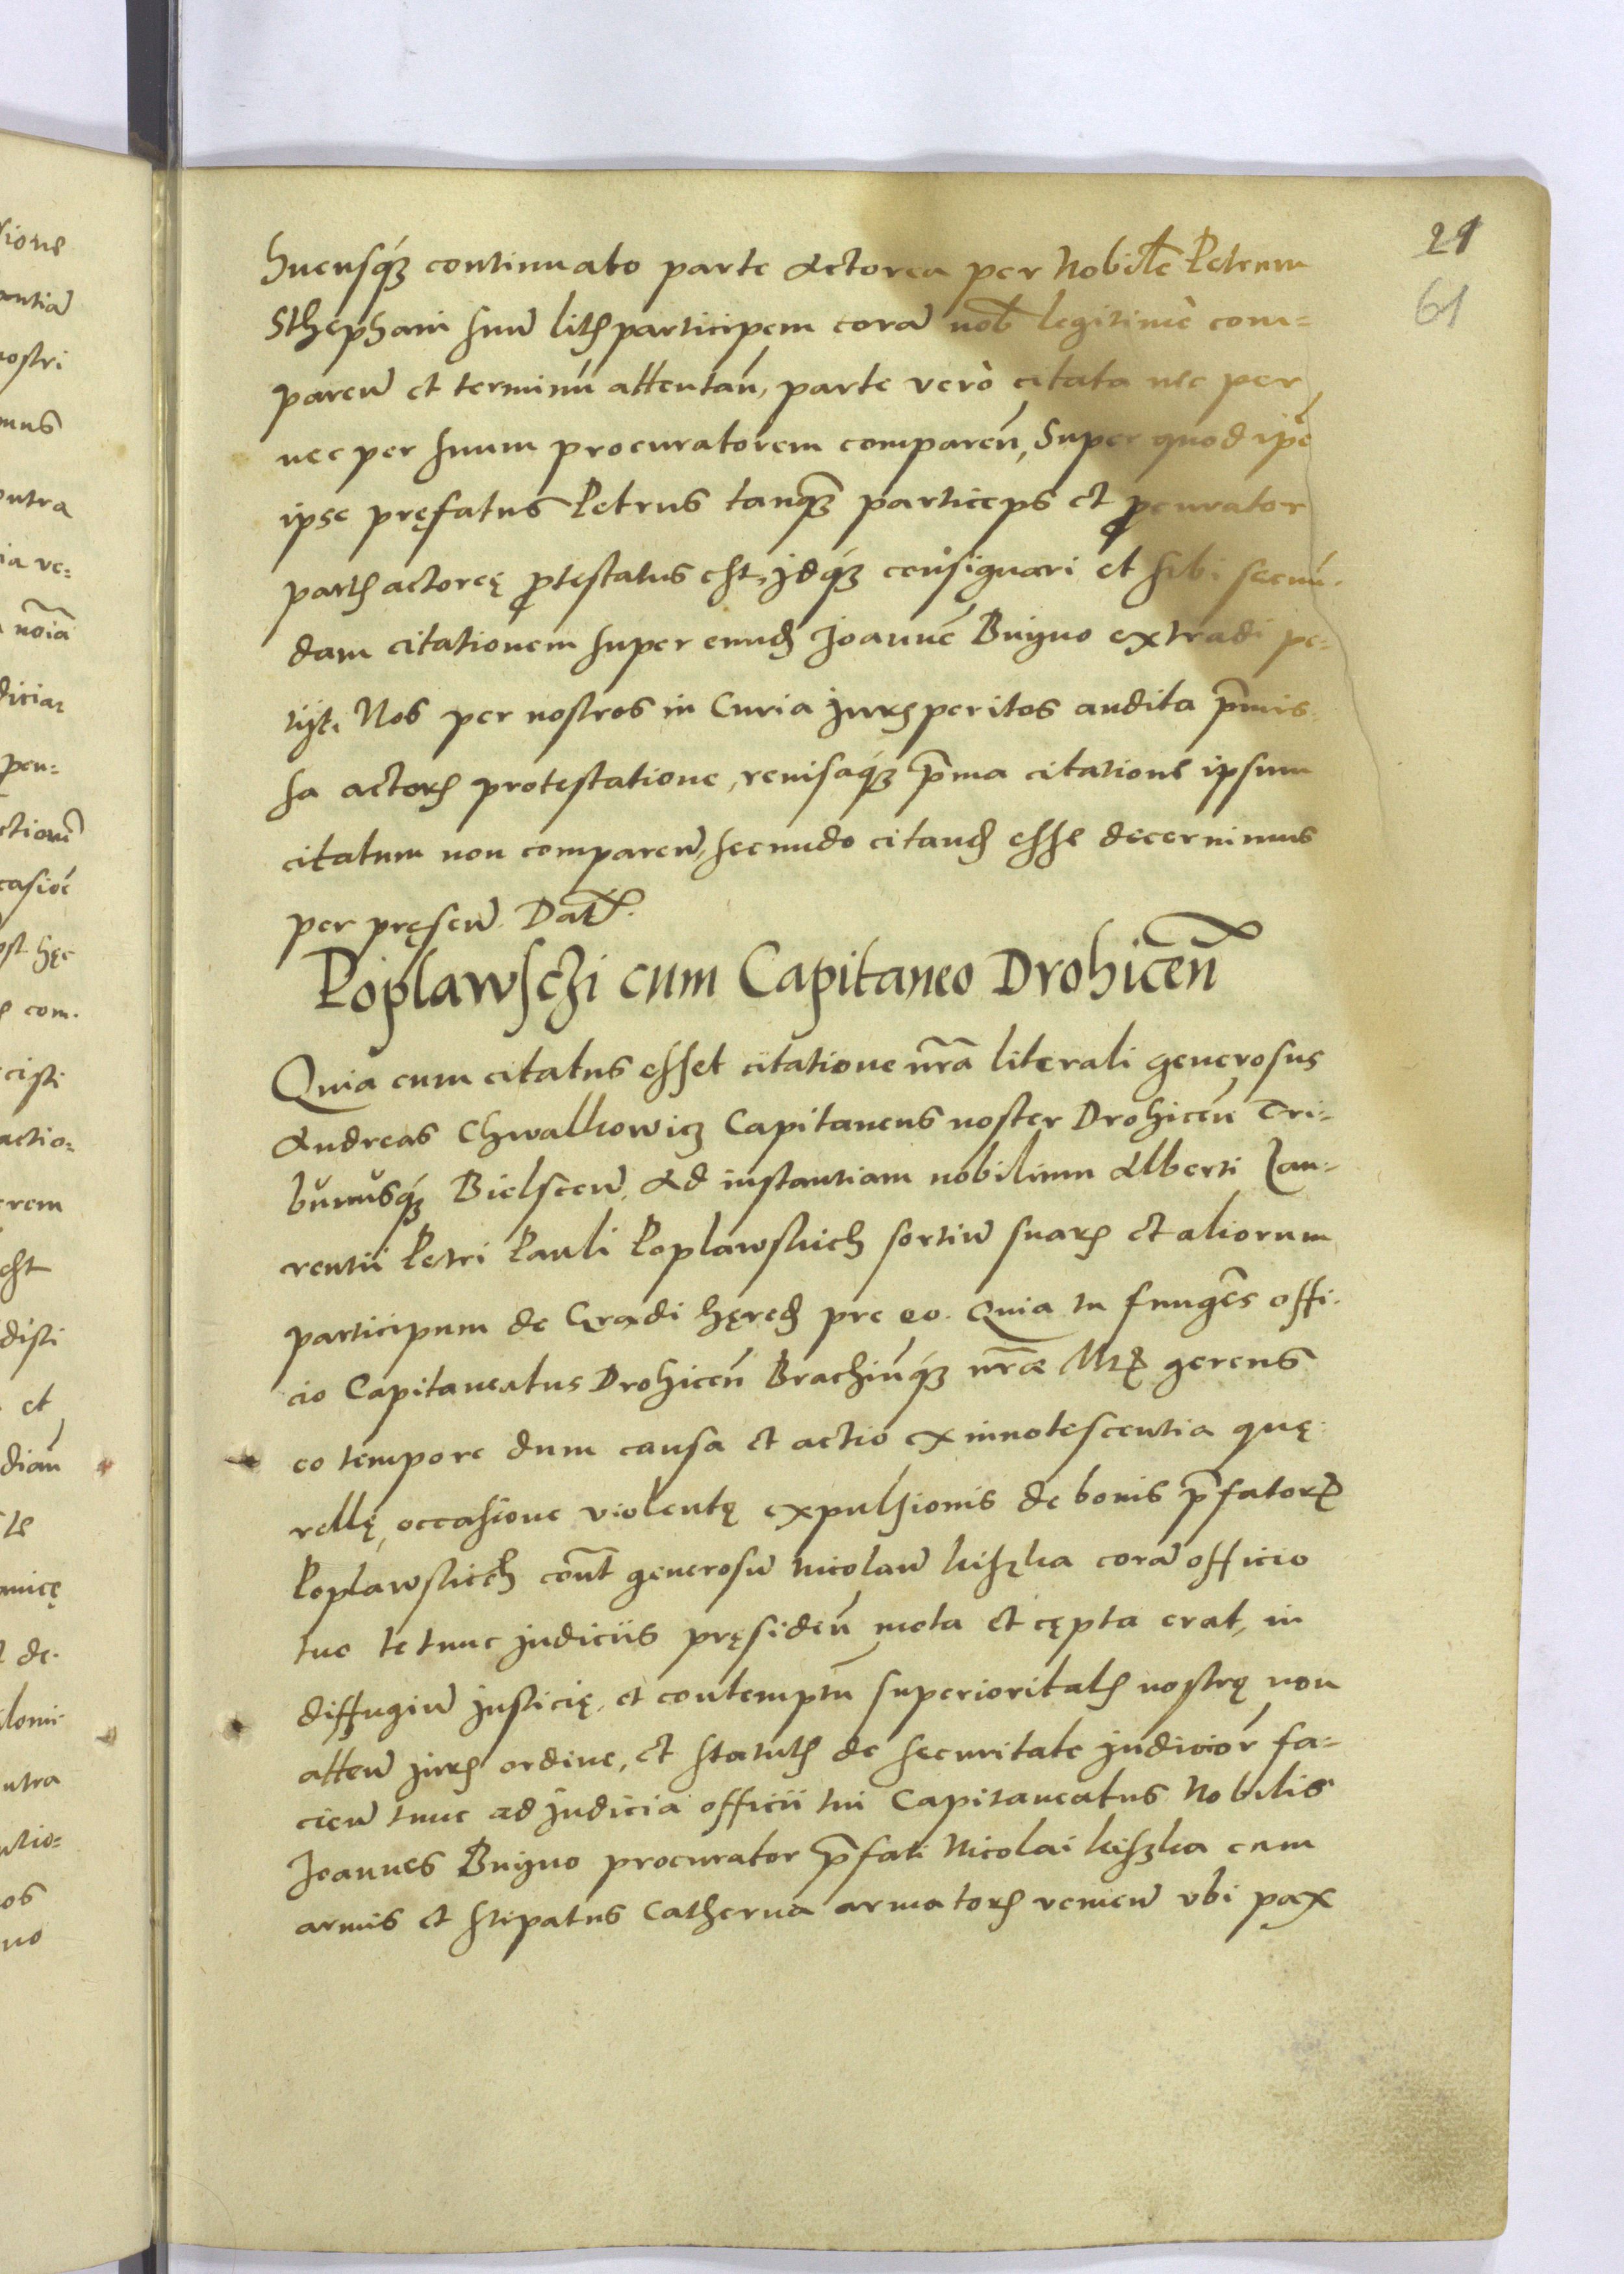 21
61
hucusq́ꝫ continuato parte Actorea per Nobilē Petrum
Sthephani suū litꝭ participem corā nob̄ legitimè com=
pareñ et terminū attentañ, parte verò citata nec per
nec per suum procuratorem compareñ, Super quod ipē
ipse pręfatus Petrus tanqꝫ particeps et ꝓcurator
partꝭ actoreę ꝓtestatus est, jdq́ꝫ consignari et sibi secuń.
dam citationem super eundꝭ Joannē Buÿno extradi pe=
tijt. Nos per nostros in Curia jurꝭperitos audita p̄mis.
sa actorꝭ protestatione, reuisaq́ꝫ p̄ma citatione ipsum
citatum non compareñ, secundo citandꝭ esse decernimus
per pręseñ. Datꝭ.
Poplawsczi cum Capitaneo Drohiceñ
Quia cum citatus esset citatione nr̄a literali generosus
Andreas Chwalkowicz Capitaneus noster Drohiceñ Tri=
bunusq́ꝫ Bielsceñ. Ad instantiam nobilium Alberti Lau=
rentii Petri Pauli Poplawskich sortiū suarꝭ et aliorum
participum de Gradi hęredꝭ pre eo. Quia tu fungēs offi.
cio Capitaneatus Drohiceñ Brachiuḿq́ꝫ nr̄æ Mꝭ gerens
eo tempore dum causa et actio ex innotescentia quę.
rellę, occasione violentę expulsionis de bonis p̄fatorꝝ
Poplawskich cont̄ generosū Nicolaū kiszka corā officio
tuo te tunc judiciis pręsideñ mota et cępta erat, in
diffugiū justicię, et contemptū superioritatꝭ nostrę non
atteñ jurꝭ ordine, et statutꝭ de securitate judiciór fa=
cieñ tunc ad judicia officii tui Capitaneatus Nobilis
Joannes Buÿno procurator p̄fati Nicolai kiszka cum
armis et stipatus Catherua armatorꝭ venieñ vbi pax